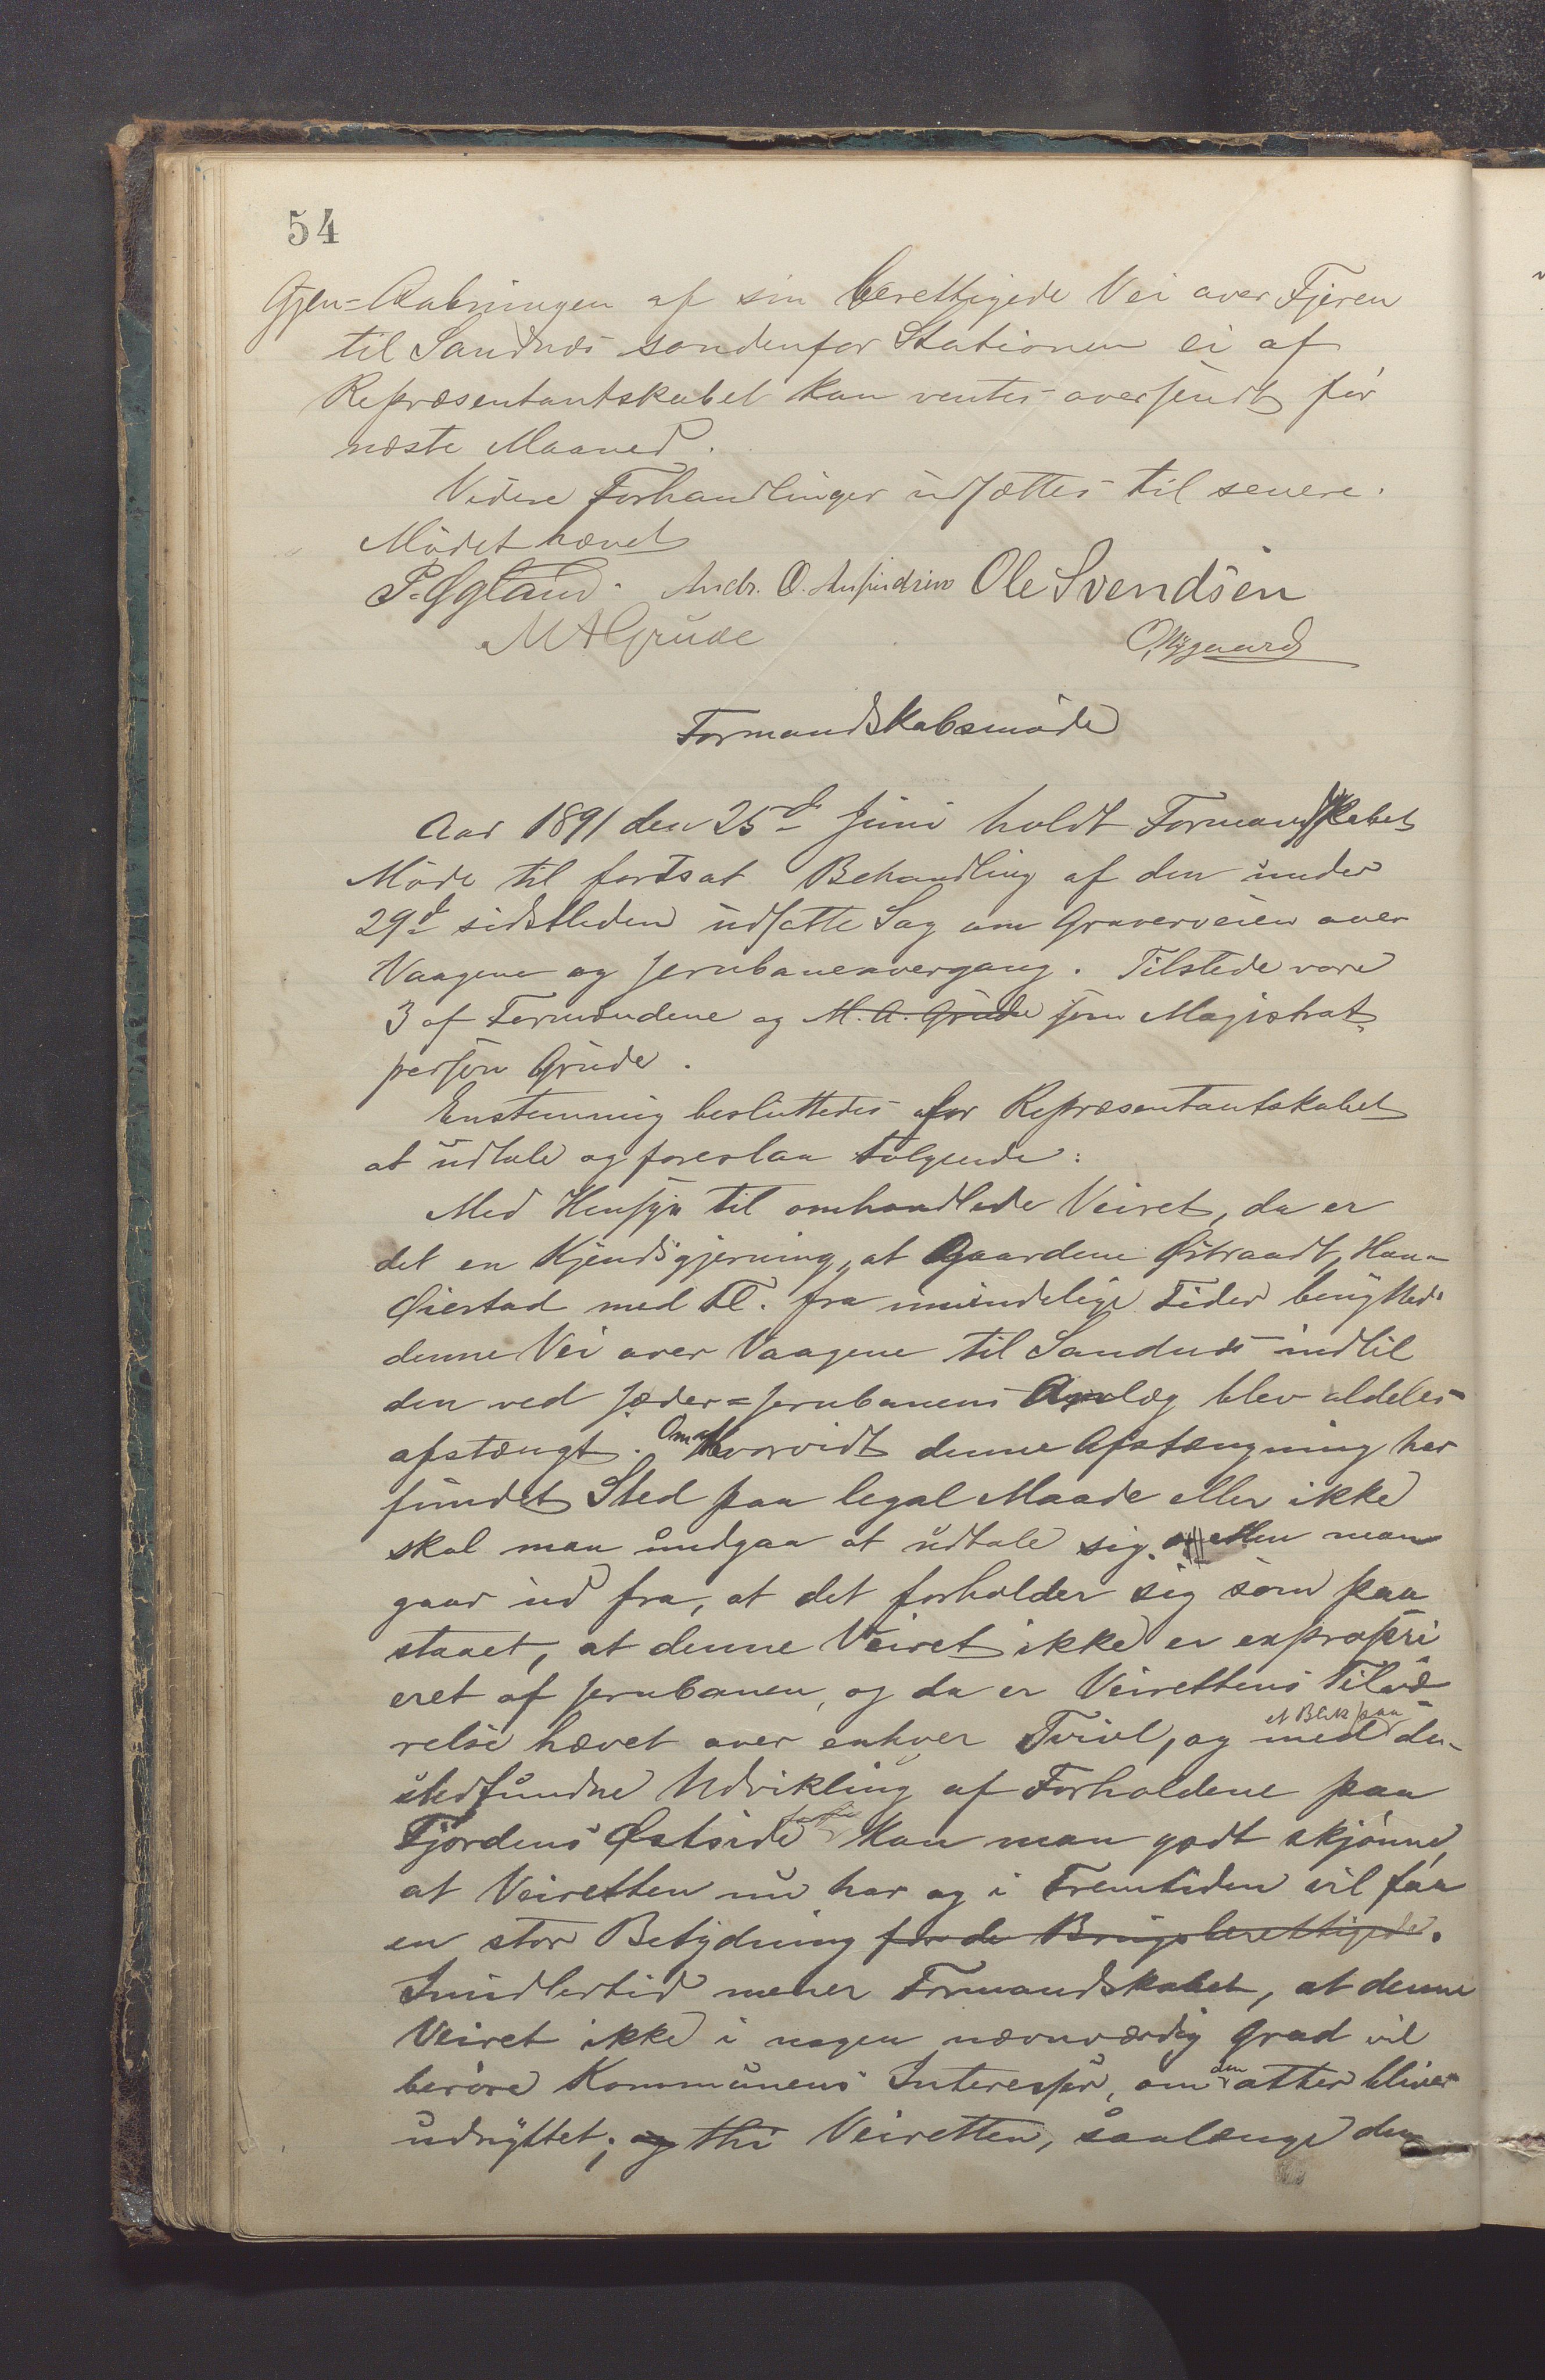 54
Gjen=Aabningen af sin berettigede Vei over Fjæren
til Sandnæs søndenfor Stationen ei af
Repræsentantskabet kan ventes oversendt før
næste Maaned.
Videre Forhandlinger udsættes til senere.
Mødet hævet
P. Egland. Andr. O. Ole Svendsen
M A Grude O Nygaard
Formandskabsmøde
Aar 1891 den 25d Juni holdt Formandskabet
Møde til fortsat Behandling af den under
29d sidstleden udsatte Sag om Graverveien over
Vaagene og Jernbaneovergang. Tilstede vare
3 af Formændene og M. A. Grude som Magistrat
person Grude.
Enstemmig besluttedes for Repræsentantskabet
at udtale og foreslaa følgende:
Med Hensyn til omhandlede Veiret, da er
det en Kjendsgjerning, at Gaardene Østraadt, Hana
Øiestad med Fl. fra umindelige Tider benyttede
denne Vei over Vaagene til Sandnæs indtil
den ved Jæder=Jernbanens Anlæg blev aldeles
afstængt. Om at hvorvidt denne Afstængning har
fundet Sted paa legal Maade eller ikke
skal man undgaa at udtale sig. Men man
gaar ud fra, at det forholder sig som paa
staaet, at denne Veiret ikke er expropri
eret af Jernbanen, og da er Veirettens Tilvæ
relse hævet over enhver Tvivl, og med et Blik paa den
stedfundne Udvikling af Forholdene paa
Fjordens Østside kan man godt skjønne,
at Veiretten nu har og i Fremtiden vil faa
en stor Betydning for de Brugsberettigede.
Imidlertid mener Formandskabet, at denne
Veiret ikke i nogen nævnværdig Grad vil
berøre Kommunens Interesser, om den atter bliver
udnyttet; og thi Veiretten, saalænge den